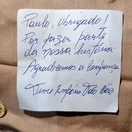 Paulo, Obrigado!
Por fazer parte
da nossa história.
Agradecemos a confiança
Time